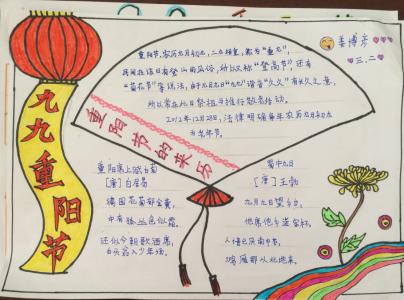 重阳节,农历九月初九,二九相重,称为"重九",
民间在该日有登山的风俗,所以又称"登高节",还有
"菊花节"等说法,由于九月九日"九九"谐音"久久"有长久之意,
所以常在此日祭祖与推行敬老活动。
2012年12月28日,法律明确每年农历九月初九
为老年节。
姜博彦
三.二
九九重阳节
重阳节的来历
重阳席上赋白菊
[唐]白居易
满园花菊郁金黄,
中有孤丛色似霜。
还似今朝歌酒席,
白头翁入少年场。
蜀中九日
[唐]王勃
九月九日望乡台,
他席他乡送客杯。
人情已厌南中苦,
鸿雁那从北地来。